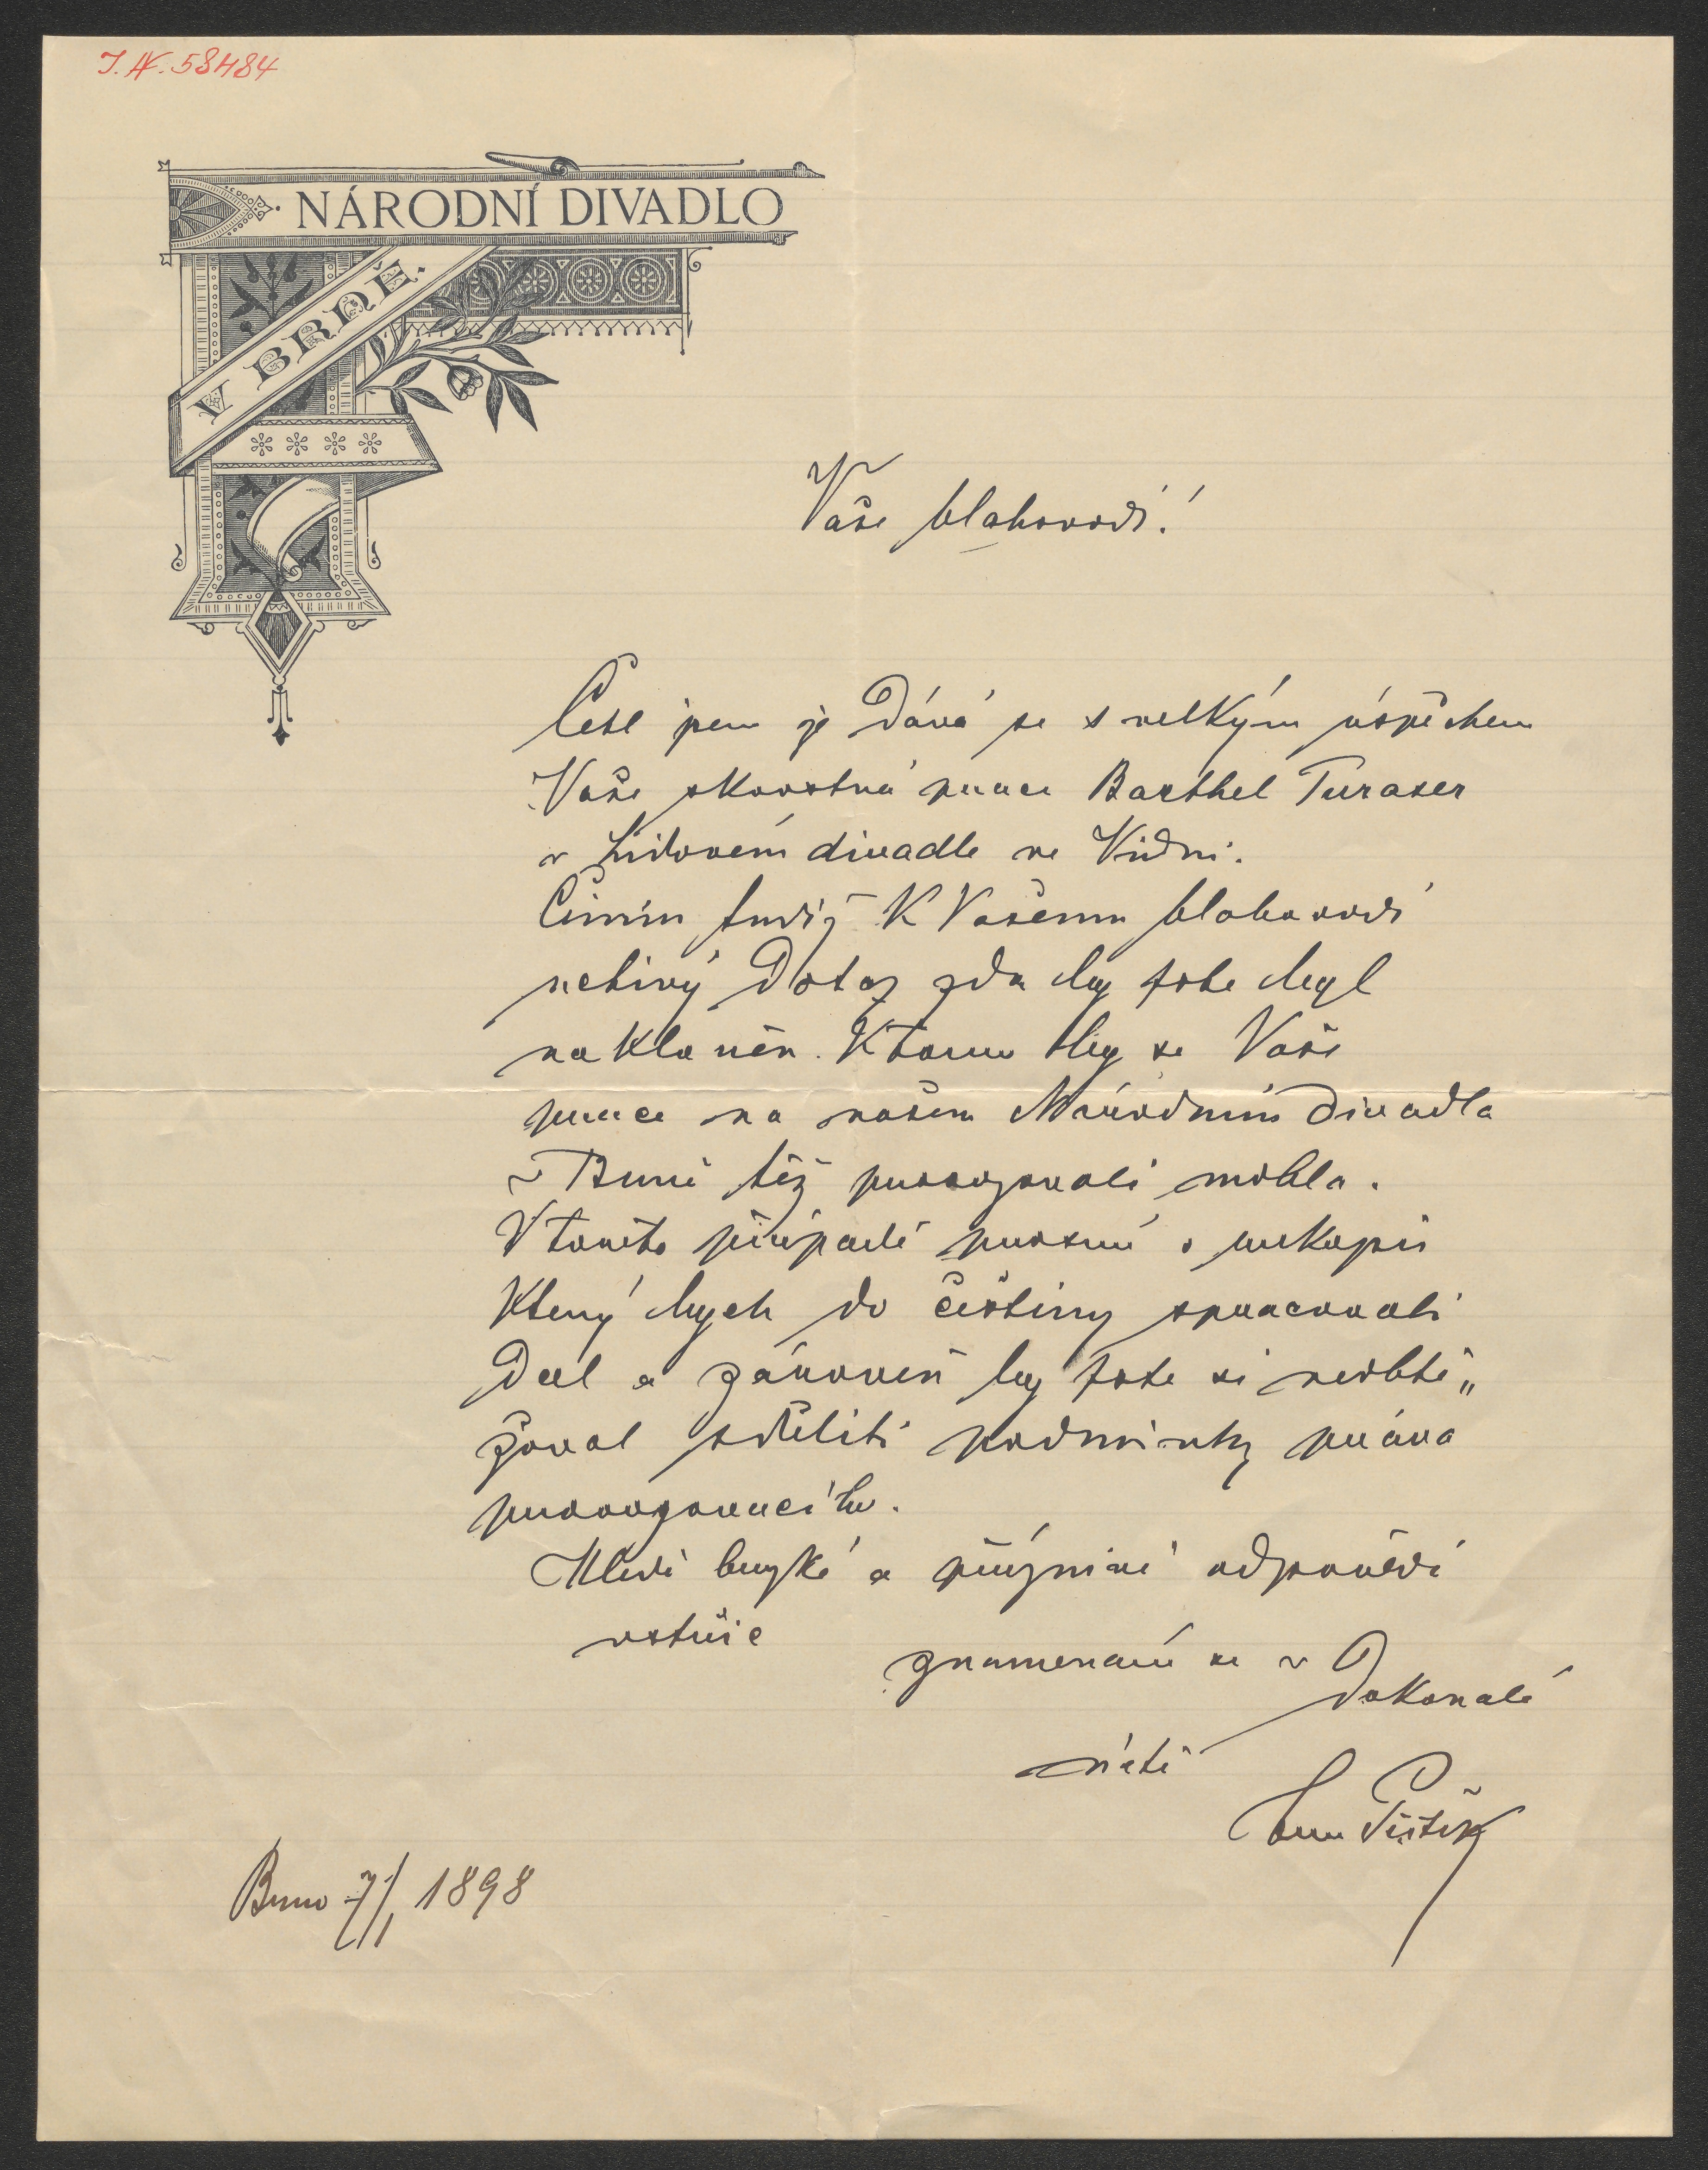 J. N. 58484
NÁRODNÍ DIVADLO
V BRNĚ.
Vaše blahorodí!
Četl jsem že dává se s velkým úspěchem
Vaše skvostná práce Barthel Turaser
v Lidovém divadle ve Vídni.
Činím tudíž K Vašemu blahorodí
uctivý Dotaz zda by jste byl
nakloněn. K tomu by se Vaše
práce na našem Národním Divadla
v Brně též provozovati mohla.
V tomto případě prosím o rukopis
Který bych do češtiny spracovati
Dal a zároveň by jste si neobtě„
žoval sděliti podmínky práva
provozovacího.
Milé brzké a příznivé odpovědi
vstříc
znamenám se v Dokonalé
úctě
Pištěk
Brno 7/1 1898